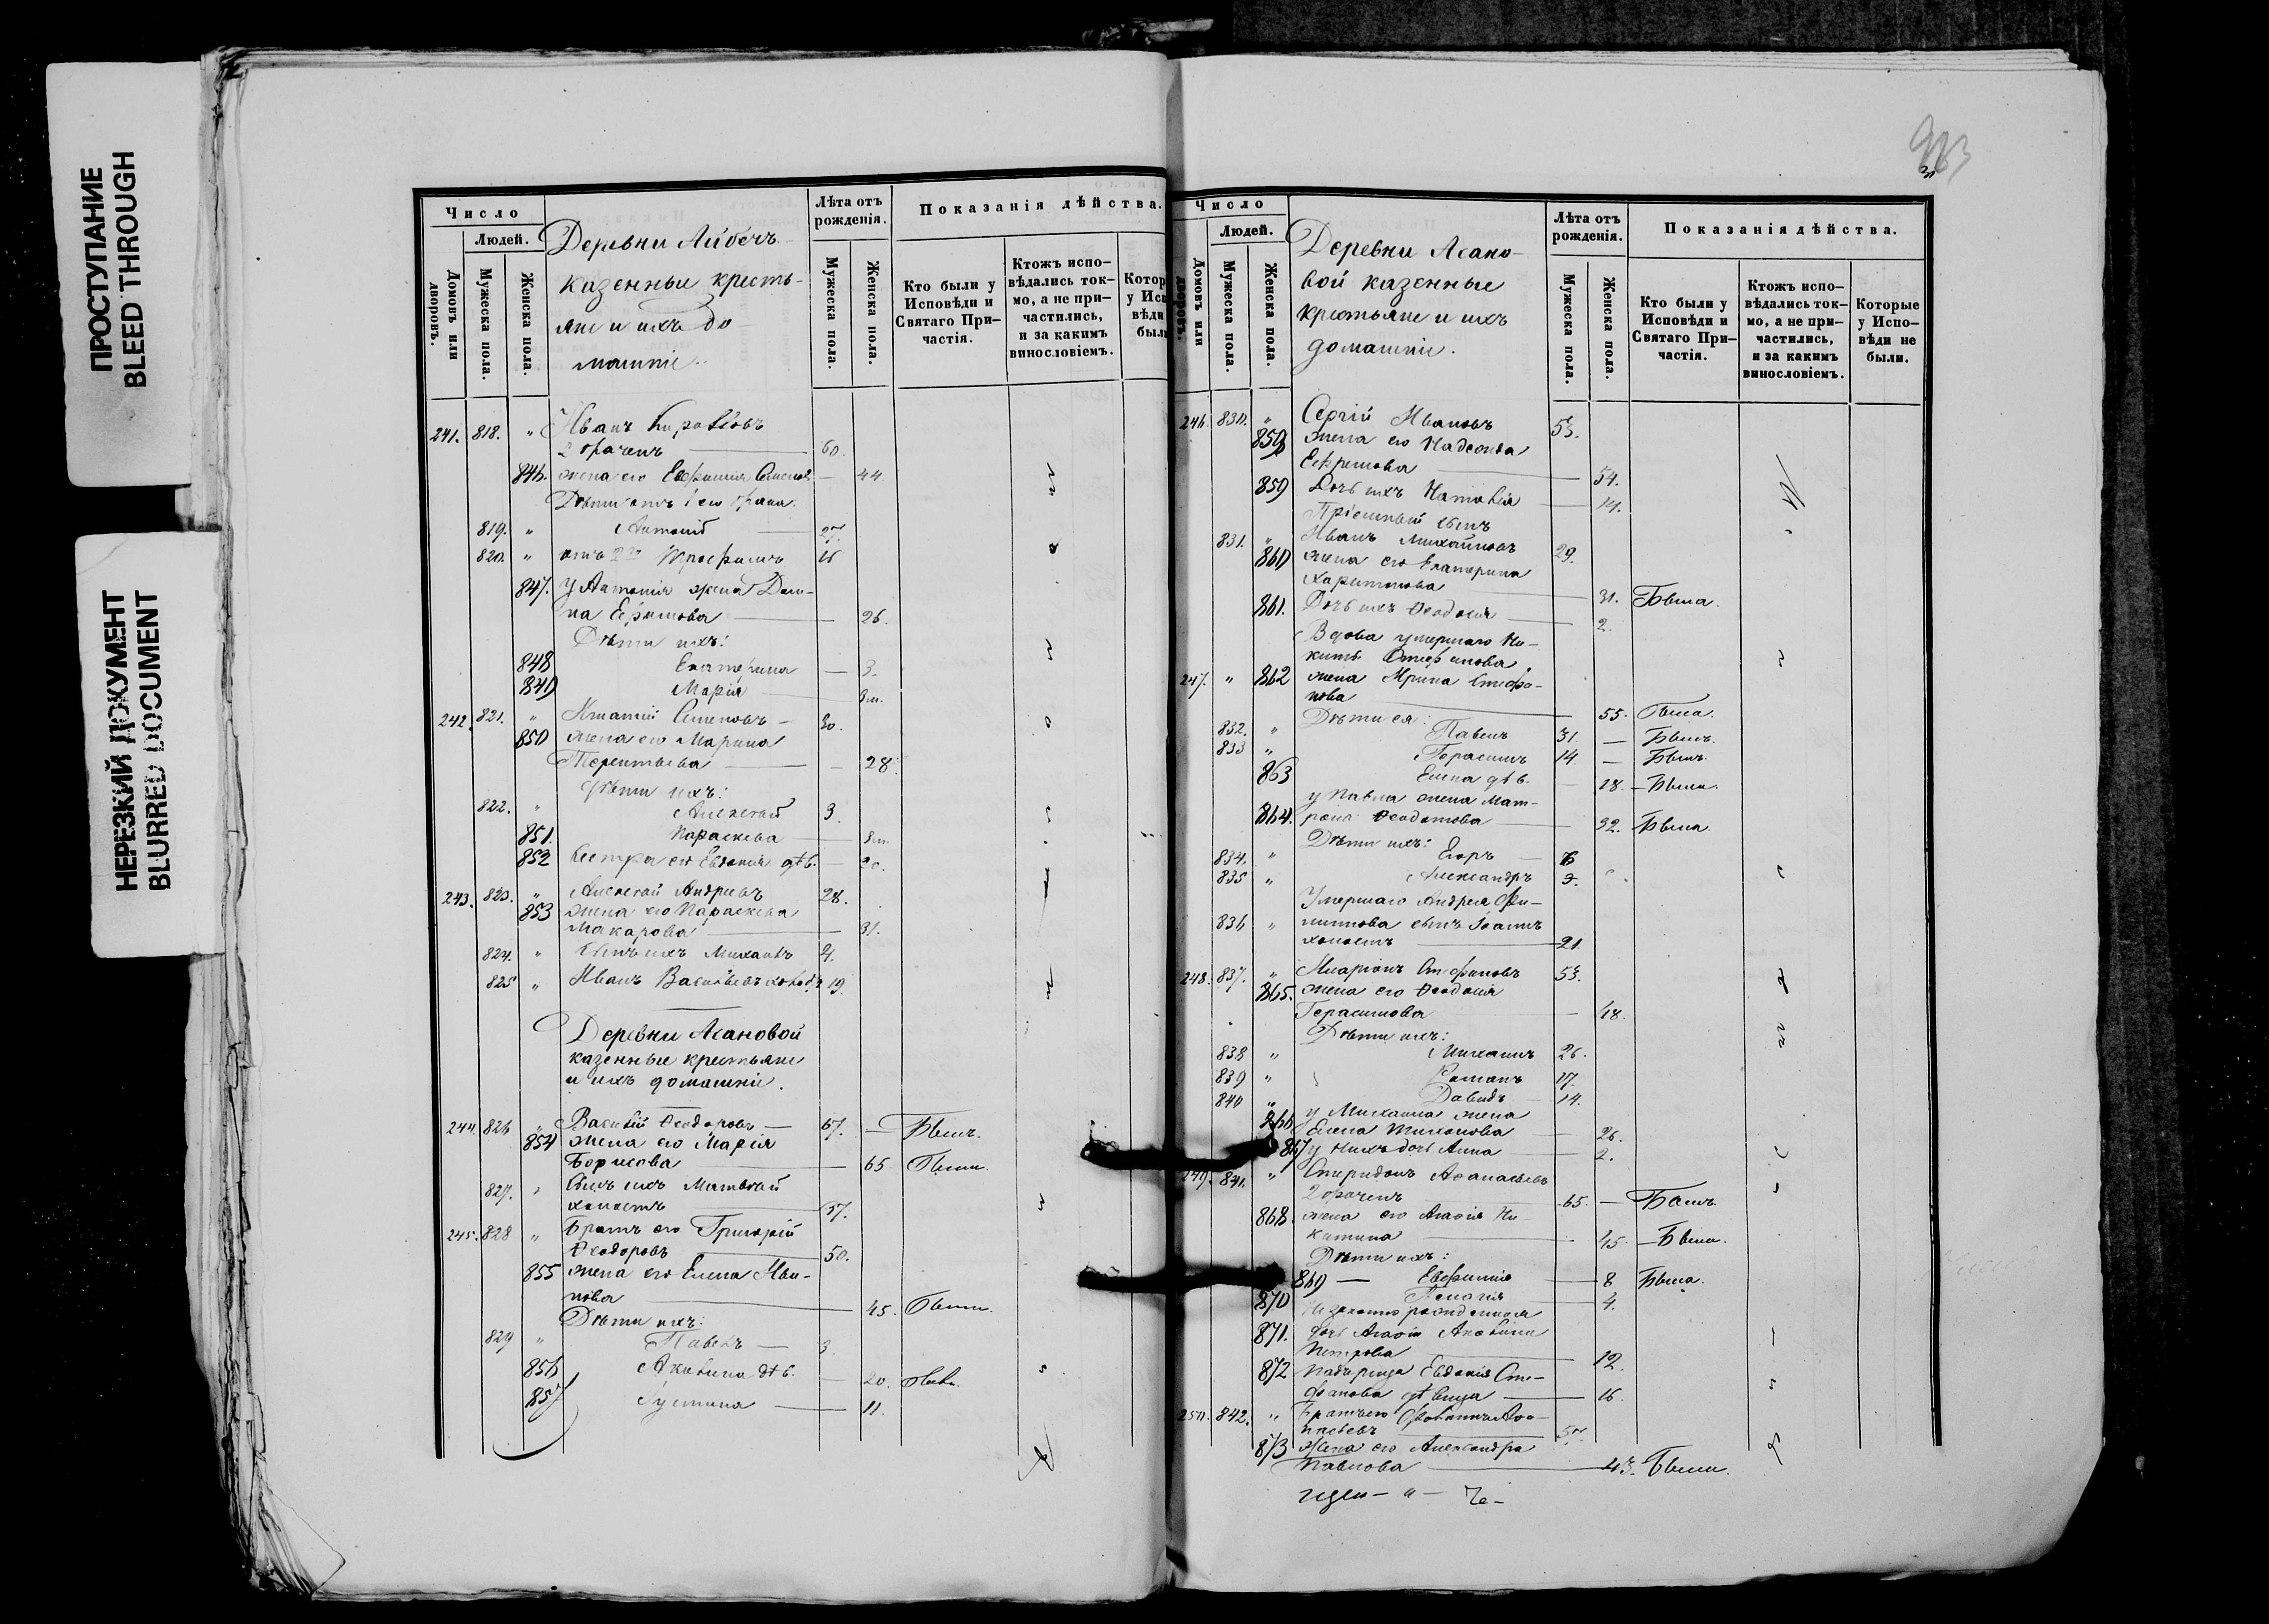 ПРОСТУПАНИЕ
BLEED THROUGH
НЕРЕЗКИЙ ДОКУМЕНТ
BLURRED DOCUMENT
Число
Людей.
Домовъ или дворовъ.
Мужеска пола.
Женска пола.
Деревни
казенныи кресть-
яне и ихъ до
машніе.
Лѣта отъ рожденія.
Мужеска пола.
Женска пола.
Показанія дѣйства.
Кто были у Исповѣди и Святаго При-частія.
Ктожъ испо-вѣдались ток-мо, а не при-частились, и за какимъ винословіемъ.
241. 818. " Иванъ
2 бракомъ 60.
846. жена его Евфимія 44
Дѣти отъ 1го брака:
819. " Антоній 27.
820. " отъ 2го Трофимъ 16
847. у Антонія жена Дом-
на Ефимова 26.
Дѣти ихъ:
848 Екатерина 3.
849 Марія
242. 821. " Игнатій Семеновъ 30.
850 жена его Марина
Терентьева 28.
Дѣти ихъ:
822. " Алексѣй 3
851. Параскева
852 Сестра его Евдокія дѣв. 20.
243. 823. " Алексѣй Андреевъ 28.
853 жена его Параскева
Макарова 31.
824. " сынъ ихъ Михаилъ 4.
825 " Иванъ Васильевъ 19.
Деревни Асановой
казенные крестьяне
и ихъ домашніе.
244. 826 " Василій Ѳеодоровъ 67. Былъ.
854 жена его Марія
Борисова 65 Была.
827. " Сынъ ихъ Матвѣй
холостъ 37.
245. 828 " Братъ его Григорій
Ѳеодоровъ 50.
855 жена его Елена Ива-
нова 45. Была.
Дѣти ихъ:
829 " Павелъ 3.
856 Акилина дѣв. 20.
857 Іустина 11.
Число
Людей.
Домовъ или дворовъ.
Мужеска пола.
Женска пола.
Деревни Асано-
вой казенные
крестьяне и ихъ
домашніе.
Лѣта отъ рожденія.
Мужеска пола.
Женска пола.
Показанія дѣйства.
Кто были у Исповѣди и Святаго При-частія.
Ктожъ испо-вѣдались ток-мо, а не при-частились, и за какимъ винословіемъ.
Которые у Испо-вѣди не были.
246. 830. " Сергій Ивановъ 53.
жена его Надежда
Ефремова 54.
859 Дочь ихъ Наталія 14.
Пріемный сынъ
831. " Иванъ Михайловъ 29.
860 жена его Екатерина
Харитонова 31. Была.
861. Дочь ихъ Ѳеодосія 2.
Вдова умершаго Ни-
киты Стефанова
247. " 862 жена Ирина Стефа-
нова 55. Была.
Дѣти ея:
832. " Павелъ 31. Былъ.
833 " Герасимъ 14 Былъ.
863 Елена дѣв. 18. Была.
у Павла жена Мат-
864. рона Ѳеодотова 32. Была.
Дѣти ихъ:
834. " Егоръ
835 " Александръ
Умершаго Андрея Фи-
836 " липпова сынъ Іоаннъ
холостъ 21.
248. 837. " Иларіонъ Стефановъ 53.
865. жена его Ѳеодосія
Герасимова 48.
Дѣти ихъ:
838 " Михаилъ 26.
839 " Романъ 17.
840 " Давидъ 14.
866 у Михаила жена
Елена Тихонова 26.
867 у нихъ дочь Анна 2.
249. 841. " Спиридонъ Аѳанасьевъ
2 бракомъ 65. Былъ.
868. жена его Агаѳія Ни-
китина 45. Была.
Дѣти ихъ:
869 Евфимія 8 Была.
870 Пелагія 4.
Незаконнорожденная
871. дочь Агаѳіи Акилина
Петрова 12.
872 падчерица Евдокія Сте-
фанова дѣвица 16.
250. 842. " Братъ его Аѳа-
насьевъ 57.
873 Жена его Александра
Павлова 43. Была.